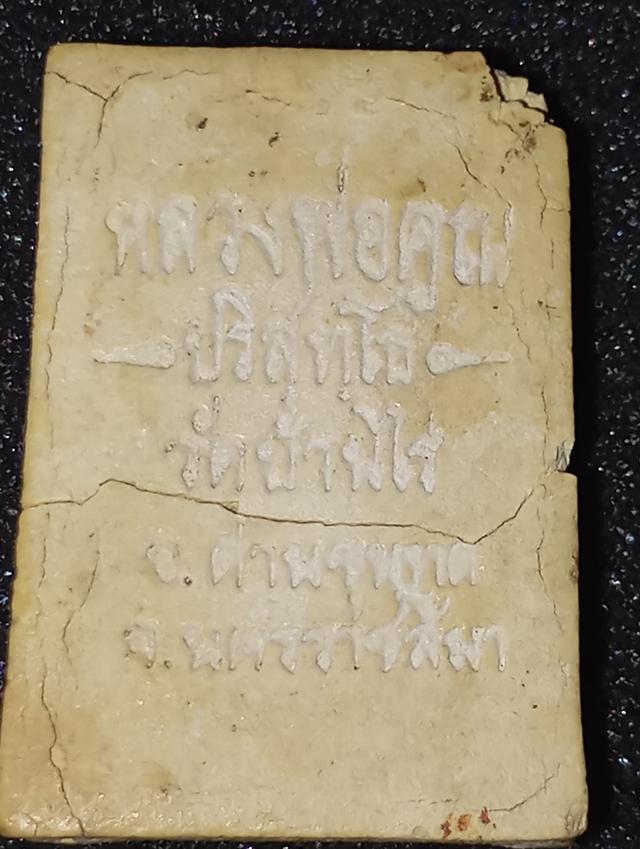 หลวงพ่อคูณ
ปริสุทฺโธ
วัดบ้านไร่
อ.ด่านขุนทด
จ.นครราชสีมา